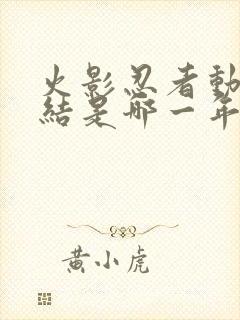 火影忍者動
結是哪一年
黃小虎